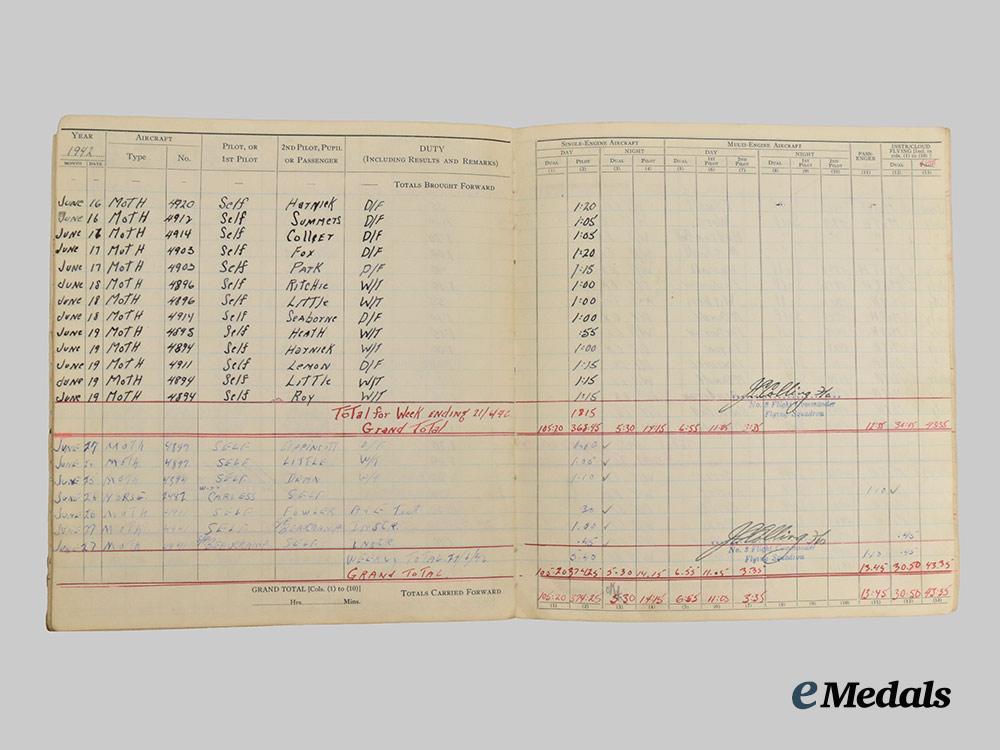 YEAR AIRCRAFT PILOT, OR 1ST PILOT 2ND PILOT, PUPIL OR PASSENGER DUTY (INCLUDING RESULTS AND REMARKS) SINGLE-ENGINE AIRCRAFT MULTI-ENGINE AIRCRAFT PASSENGER INSTR/CLOUD FLYING [Incl. in cols. (1) to (10)]
1942 Type No. DAY NIGHT DAY NIGHT
MONTH DATE DUAL PILOT DUAL PILOT DUAL 1ST PILOT 2ND PILOT DUAL 1ST PILOT 2ND PILOT DUAL
(1) (2) (3) (4) (5) (6) (7) (8) (9) (10) (11) (12) (13)
— — — — — — TOTALS BROUGHT FORWARD
JUNE 16 MOTH 4920 Self HAYNICK D/F 1:20
JUNE 16 MOTH 4912 Self SUMMERS D/F 1:05
JUNE MOTH 4914 Self COLLPET D/F 1:05
JUNE 17 MOTH 4903 Self FOX D/F 1:20
JUNE 17 MOTH 4903 Self PARK D/F 1:15
JUNE 18 MOTH 4896 Self RITCHIE W/T 1:00
JUNE 18 MOTH 4896 Self LITTLE W/T 1:00
JUNE 18 MOTH 4914 Self SEABORNE D/F 1:00
JUNE 19 MOTH 4895 Self HEATH W/T :55
JUNE 19 MOTH 4894 Self HAYNICK W/T 1:00
JUNE 19 MOTH 4911 Self LEMON D/F 1:15
JUNE 19 MOTH 4894 Self LITTLE W/T 1:15
JUNE 19 MOTH 4894 Self ROY W/T 1:15
No. 8 Flight Commander
Flying Squadron
TOTAL FOR WEEK ENDING 21/6/42 18:15
GRAND TOTAL 105:20 368:45 5:30 14:15 6:55 11:05 3:35 12:35 30:05 43:35
JUNE MOTH 4897 SELF LIPPINCOTT D/F
JUNE MOTH 4897 SELF LITTLE W/T 1:05 ✓
JUNE 25 MOTH 4894 SELF DEAN W/T 1:10 ✓
JUNE 26 NORSE CARLESS SELF 1:10 ✓
JUNE 26 MOTH SELF FOWLER Test 30 ✓
JUNE 27 MOTH SELF INSTR 1:00 ✓
JUNE 27 MOTH SELF INSTR .45 ✓ .45
No. 8 Flight Commander
Flying Squadron
WEEKLY TOTAL 5:40 1:10 .45
GRAND TOTAL 105:20 374:25 5:30 14:15 6:55 11:05 3:35 13:45 30:50 43:35
GRAND TOTAL [Cols. (1) to (10)] TOTALS CARRIED FORWARD 105:20 374:25 5:30 14:15 6:55 11:05 3:35 13:45 30:50 43:35
Hrs. Mins. (1) (2) (3) (4) (5) (6) (7) (8) (9) (10) (11) (12) (13)
eMedals